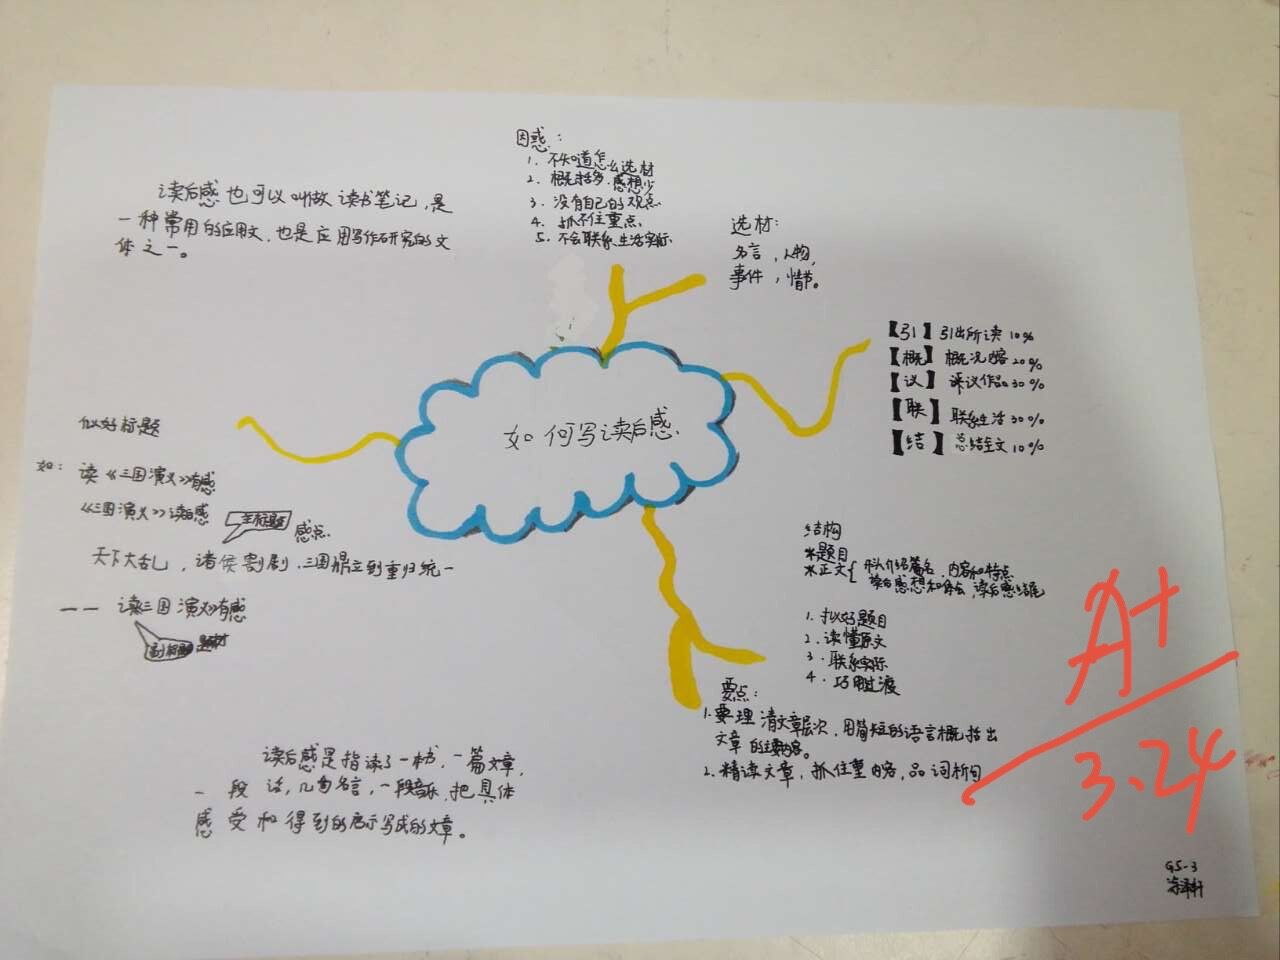 困惑：
1. 不知道怎么选材
2. 概括多，感想少
3. 没有自己的观点
4. 抓不住重点
5. 不会联系生活实际
读后感也可以叫做读书笔记，是
一种常用的应用文，也是应用写作研究的文
体之一。
选材：
名言，人物，
事件，情节。
【引】引出所读 10%
【概】概况内容 20%
【议】评议作品 30%
【联】联系生活 30%
【结】总结全文 10%
如何写读后感
拟好标题
如：读《三国演义》有感
《三国演义》读后感
主标题 感点
天下大乱，诸侯割剧，三国鼎立到重归统一
—— 读《三国演义》有感
副标题 题材
结构
*题目
*正文{ 介绍篇名，内容和特点
读后感想和体会，读后感结尾
1. 拟好题目
2. 读懂原文
3. 联系实际
4. 巧用过渡
要点：
1. 要理清文章层次，用简短的语言概括出
文章的主要内容。
2. 精读文章，抓住重内容，品词析句
读后感是指读了一本书，一篇文章，
一段话，几句名言，一段音乐，把具体
感受和得到的启示写成的文章。
A+
3.24
G5-3